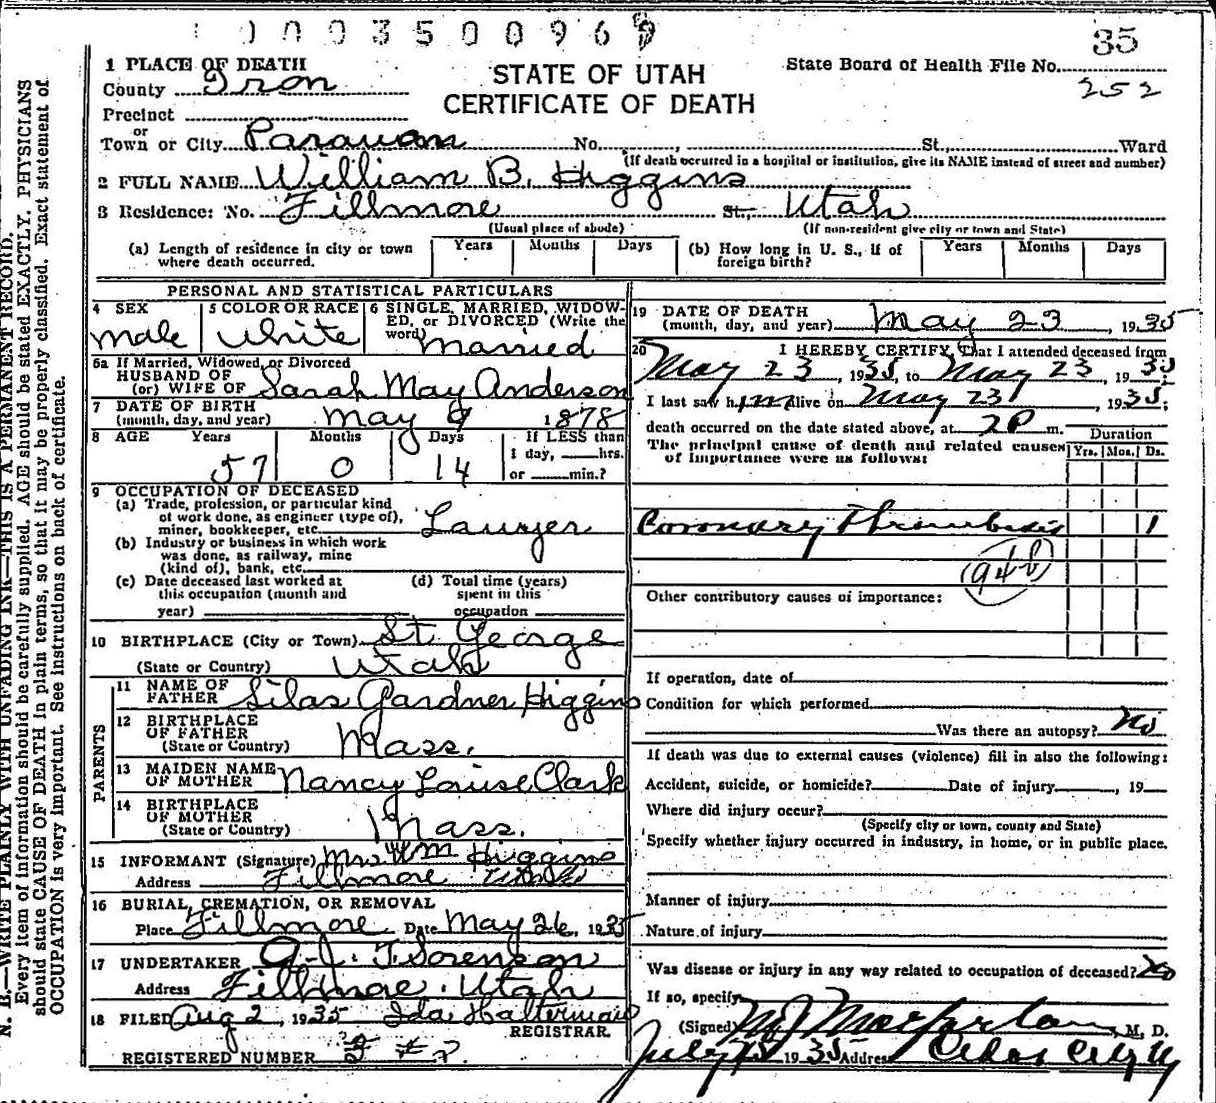 0003500969
35
1 PLACE OF DEATH
STATE OF UTAH
CERTIFICATE OF DEATH
State Board of Health File No.
252
County Iron
Precinct
or
Town or City Parawan No. , St., Ward
(If death occurred in a hospital or institution, give its NAME instead of street and number)
2 FULL NAME William B. Higgins
3 Residence: No. Fillmore St., Utah
(Usual place of abode) (If non-resident give city or town and State)
(a) Length of residence in city or town where death occurred. Years Months Days
(b) How long in U. S., if of foreign birth? Years Months Days
PERSONAL AND STATISTICAL PARTICULARS
4 SEX male
5 COLOR OR RACE White
6 SINGLE, MARRIED, WIDOWED, or DIVORCED (Write the word) Married
6a If Married, Widowed, or Divorced
HUSBAND OF
(or) WIFE OF Sarah May Anderson
7 DATE OF BIRTH
(month, day, and year) May 9 1878
8 AGE Years Months Days If LESS than
57 0 14 1 day, hrs.
or min.?
9 OCCUPATION OF DECEASED
(a) Trade, profession, or particular kind
of work done, as engineer (type of),
miner, bookkeeper, etc. Lawyer
(b) Industry or business in which work
was done, as railway, mine
(kind of), bank, etc.
(c) Date deceased last worked at
this occupation (month and
year)
(d) Total time (years)
spent in this
occupation
10 BIRTHPLACE (City or Town) St. George
(State or Country) Utah
PARENTS
11 NAME OF
FATHER Silas Gardner Higgins
12 BIRTHPLACE
OF FATHER
(State or Country) Mass.
13 MAIDEN NAME
OF MOTHER Nancy Louise Clark
14 BIRTHPLACE
OF MOTHER
(State or Country) Mass.
15 INFORMANT (Signature) Mrs Wm Higgins
Address Fillmore Utah
16 BURIAL, CREMATION, OR REMOVAL
Place Fillmore Date May 26, 1935
17 UNDERTAKER A. J. T. Sorenson
Address Fillmore. Utah
18 FILED Aug 2, 1935 Ida Halterman
REGISTRAR.
REGISTERED NUMBER
19 DATE OF DEATH
(month, day, and year) May 23, 1935
20 I HEREBY CERTIFY, That I attended deceased from
May 23, 1935, to May 23, 1935;
I last saw him alive on May 23, 1935;
death occurred on the date stated above, at 2P m.
The principal cause of death and related causes
of importance were as follows:
Duration
Yrs. Mos. Ds.
Coronary Thrombosis 1
(94b)
Other contributory causes of importance:
If operation, date of
Condition for which performed
Was there an autopsy? No
If death was due to external causes (violence) fill in also the following:
Accident, suicide, or homicide? Date of injury , 19
Where did injury occur?
(Specify city or town, county and State)
Specify whether injury occurred in industry, in home, or in public place.
Manner of injury
Nature of injury
Was disease or injury in any way related to occupation of deceased? No
If so, specify
(Signed) M J Macfarlane, M. D.
July 25 1935 Address Cedar City
N. B.—WRITE PLAINLY WITH UNFADING INK—THIS IS A PERMANENT RECORD.
Every item of information should be carefully supplied. AGE should be stated EXACTLY. PHYSICIANS
should state CAUSE OF DEATH in plain terms, so that it may be properly classified. Exact statement of
OCCUPATION is very important. See instructions on back of certificate.